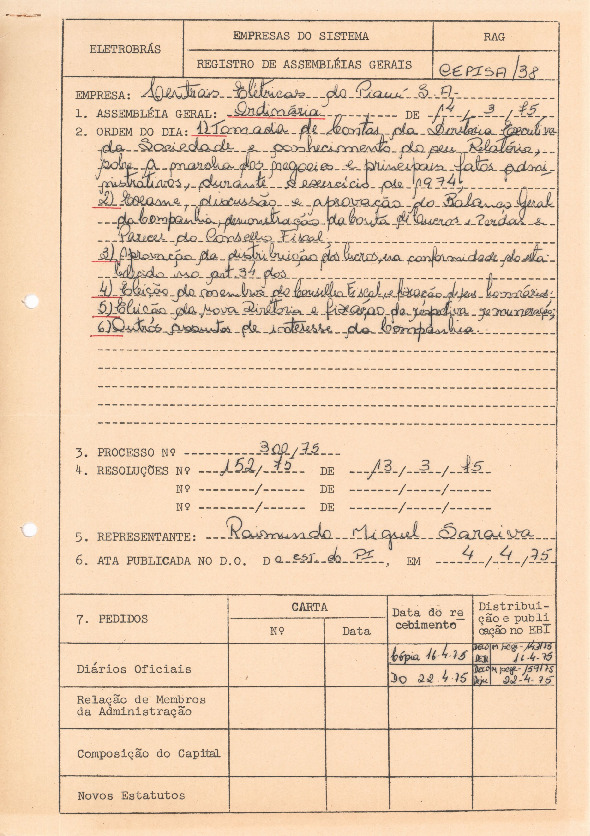 ELETROBRÁS
EMPRESAS DO SISTEMA
RAG
REGISTRO DE ASSEMBLÉIAS GERAIS
CEPISA/38
EMPRESA: Centrais Elétricas do Piauí S.A-
1. ASSEMBLÉIA GERAL: Ordinária DE 14/3/75
2. ORDEM DO DIA: 1) Tomada de contas da Diretoria Executiva
da Sociedade e conhecimento do seu Relatório,
sobre a marcha dos negócios e principais fatos admi-
nistrativos, durante o exercício de 1974;
2) Exame, discussão e aprovação do Balanço Geral
da Companhia, demonstração da Conta de Lucros e Perdas e
Parecer do Conselho Fiscal;
3) Aprovação da distribuição dos lucros, na conformidade do esta
belecido no art. 34 dos
4) Eleição de membros do Conselho Fiscal e fixação de seus honorários;
5) Eleição da nova Diretoria e fixação da respectiva remuneração;
6) Outros assuntos de interesse da Companhia.
3. PROCESSO Nº 302/75
4. RESOLUÇÕES Nº 152/75 DE 13/3/75
Nº ------/----- DE ------/-----/-----
Nº ------/----- DE ------/-----/-----
5. REPRESENTANTE: Raimundo Miguel Saraiva
6. ATA PUBLICADA NO D.O. Do est. do PI, EM 4/4/75
7. PEDIDOS
CARTA
Nº
Data
Data do re
cebimento
Distribui-
ção e publi
cação no EBI
Diários Oficiais
Cópia 16.4.75
16-4-75
DO 22.4.75
22-4-75
Relação de Membros
da Administração
Composição do Capital
Novos Estatutos